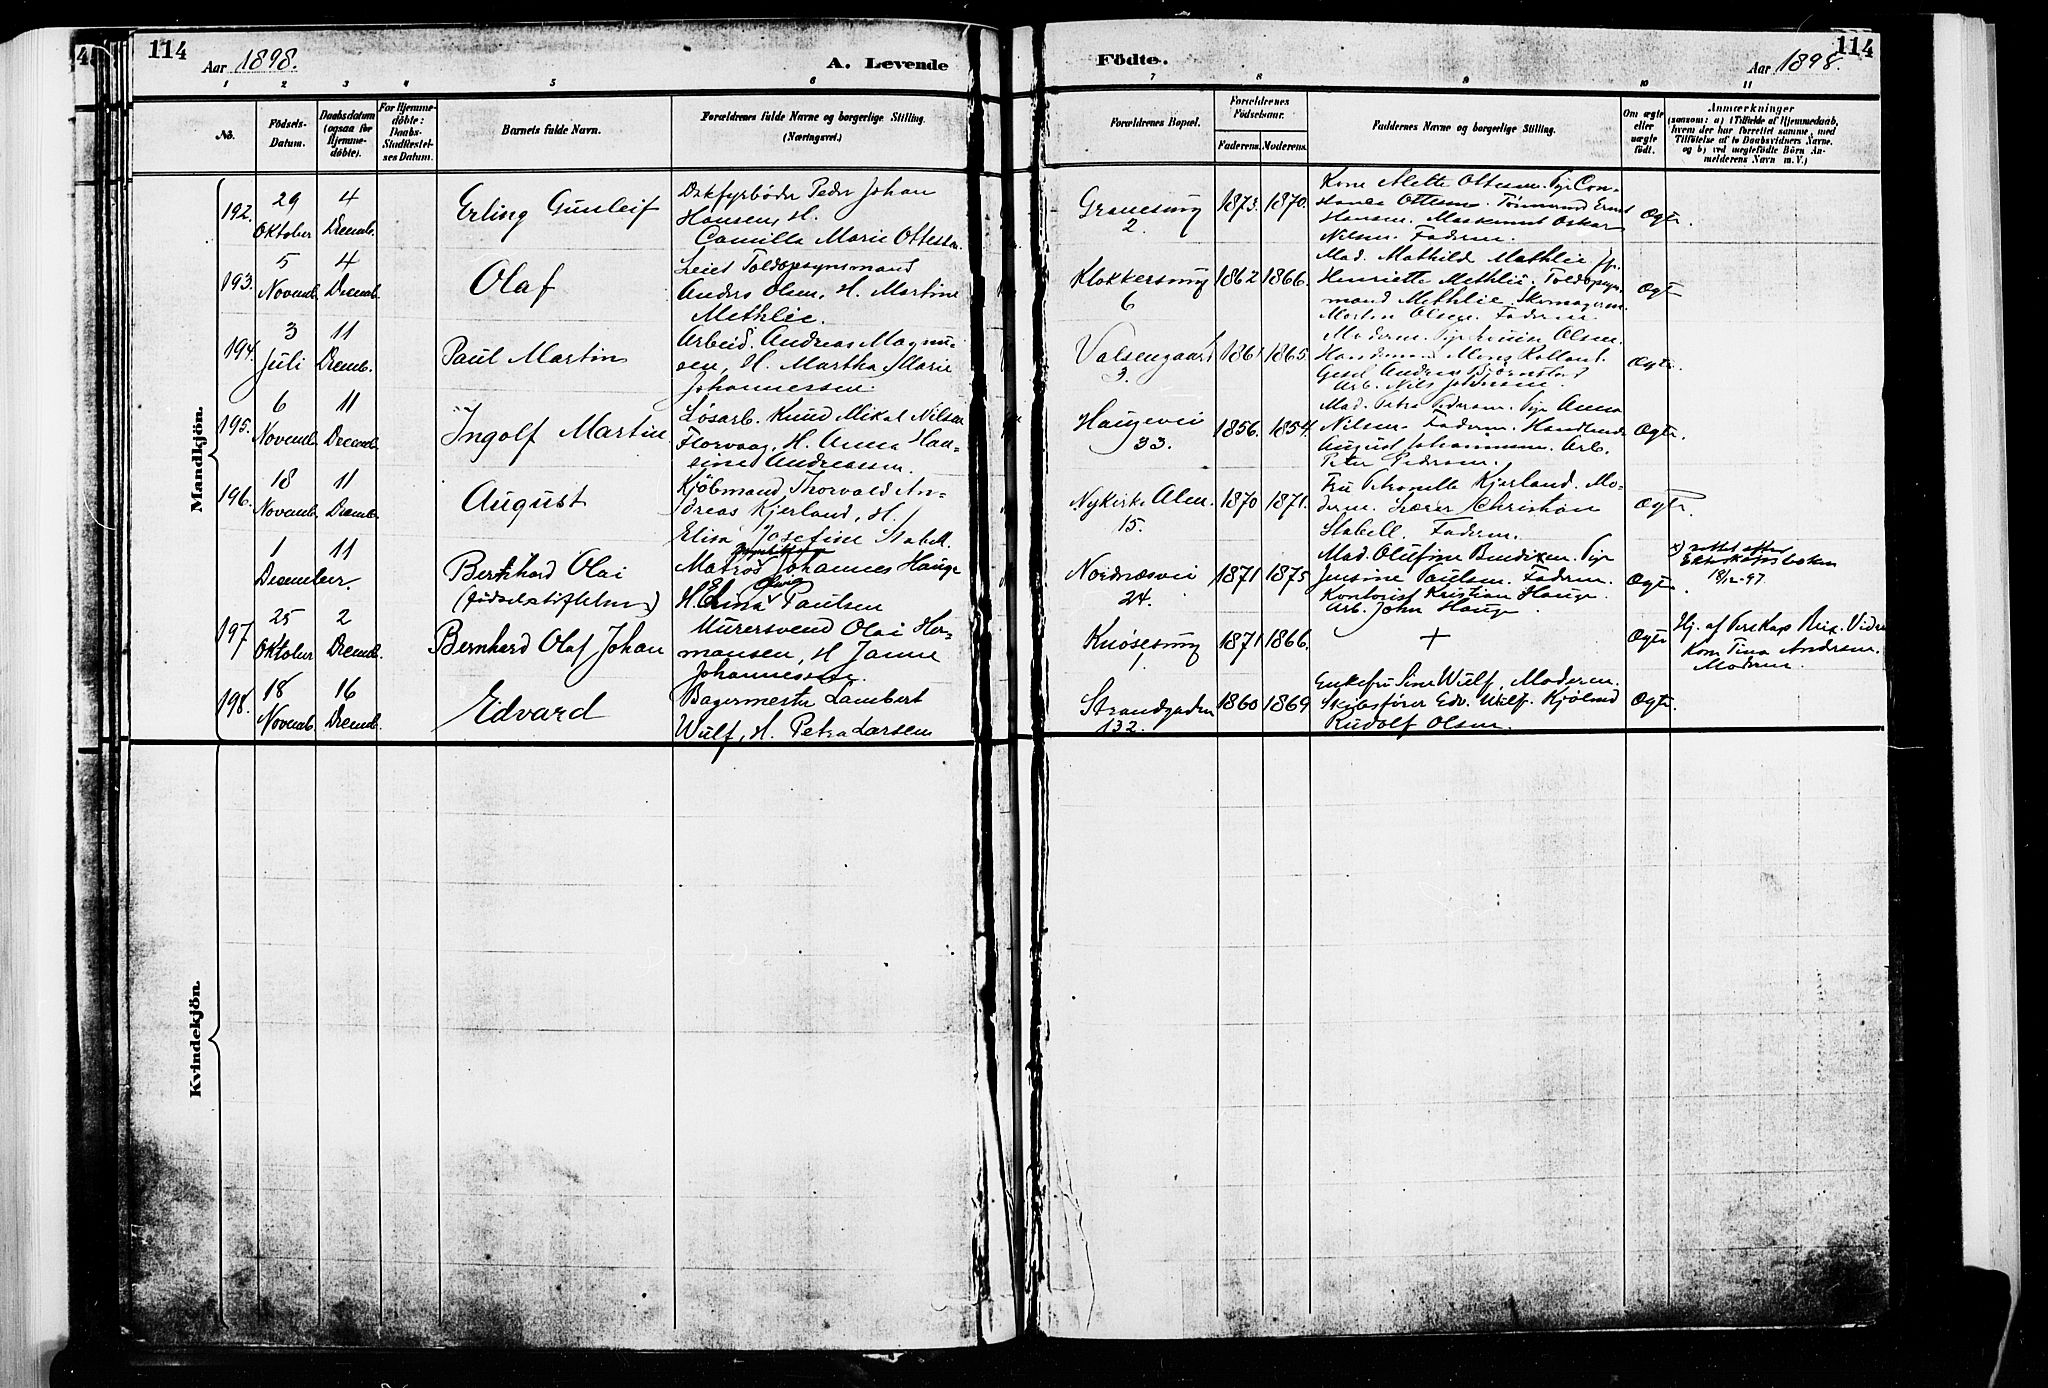 114
Aar 1898.
A. Levende
Födte.
Aar 1898.
114
1 2 3 4 5 6 7 8 9 10 11
No.
Födsels-
Datum.
Daabsdatum
(ogsaa for
Hjemme-
döbte).
For Hjemme-
döbte:
Daabs-
Stadfæstel-
ses Datum.
Barnets fulde Navn.
Forældrenes fulde Navne og borgerlige Stilling
(Næringsvei.)
Forældrenes Bopæl.
Forældrenes
Födselsaar.
Faderens. Moderens.
Faddernes Navne og borgerlige Stilling.
Om ægte
eller
uægte
födt.
Anmærkninger
(saasom: a) i Tilfælde af Hjemmedaab,
hvem der har forrettet samme, med
Tilföielse af to Daabsvidners Navne,
og b) ved uægtefödte Börn An-
melderens Navn m. V.)
Mandkjön.
192.
29
Oktober
4
Decemb.
Erling Gunleif
Dækfyrbøder Peder Johan
Hansen, H.
Camilla Marie Ottesen
2.
1873. 1870.
Kone Mette Ottesen. Pige Con-
stance Ottesen. Tømmermd Ernst
Hansen. Maskinmst Oskar
Nilsen. Faderen.
Ægte.
193.
5
Novemb.
4
Decemb.
Olaf
Leiet Toldopsynsmand
Anders Olsen, H. Martine
Methlie.
Klokkersmug
6
1862 1866.
Mad. Mathilde Methlie. Pige
Henriette Methlie. Toldopsyns-
mand Methlie. Skomagerm.
Morten Olsen. Faderen.
Ægte
194.
3
Juli
11
Decemb.
Paul Martin
Arbeid. Andreas Magnu-
sen, H. Martha Marie
Johannessen.
3.
1861 1865.
Moderen. Pige Olsen.
Arb. Nils
Ægte.
195.
6
Novemb.
11
Decemb.
Ingolf Martin
Løsarb. Knud Mikal Nilsen
Florvaag, H. Anna Han-
sine Andreassen.
Haugevei
33.
1856. 1854.
Mad. Petra Pedersen. Pige Anna
Nilsen. Faderen. Handlende
August Johannesen. Arb.
Peter Pedersen.
Ægte.
196.
18
Novemb.
11
Decemb.
August
Kjöbmand Thorvald An-
dreas Kjerland, H.
Elisa Josefine Stabell.
Nykirke Alm.
15.
1870 1871.
Fru Petronelle Kjerland. Mo-
deren. Lærer Christian
Stabell. Faderen.
Ægte.
1
December.
11
Bernhard Olai
Matros Johannes Hauge
H. Elina Olivia Paulsen
Nordnæsvei
24.
1871 1875
Mad. Olufine Bendixen. Pige
Jensine Paulsen. Faderen.
Kontorist Kristian Hauge.
Arb. John Hauge.
Ægte
x) rettet efter
Ekteskapsboken
18/12-97.
197
25
Oktober
2
Decemb.
Bernhard Olaf Johan
Murersvend Olai Her-
mansen, H Janna
Johannessen.
Knøsesmug
1
1871 1866.
+
Ægte
Hj. af Presk. Vidn.
Kone Tina Andersen.
Moderen.
198.
18
Novemb.
16
Decemb.
Edvard
Bagermester Lambert
Wulf, H. Petra Larsen
Strandgaden
132.
1860 1869
Enkefru Sine Wulf, Moderen.
Skibsfører Edv. Wulf. Kjøbmd
Rudolf Olsen.
Ægte.
Kvindekjön.